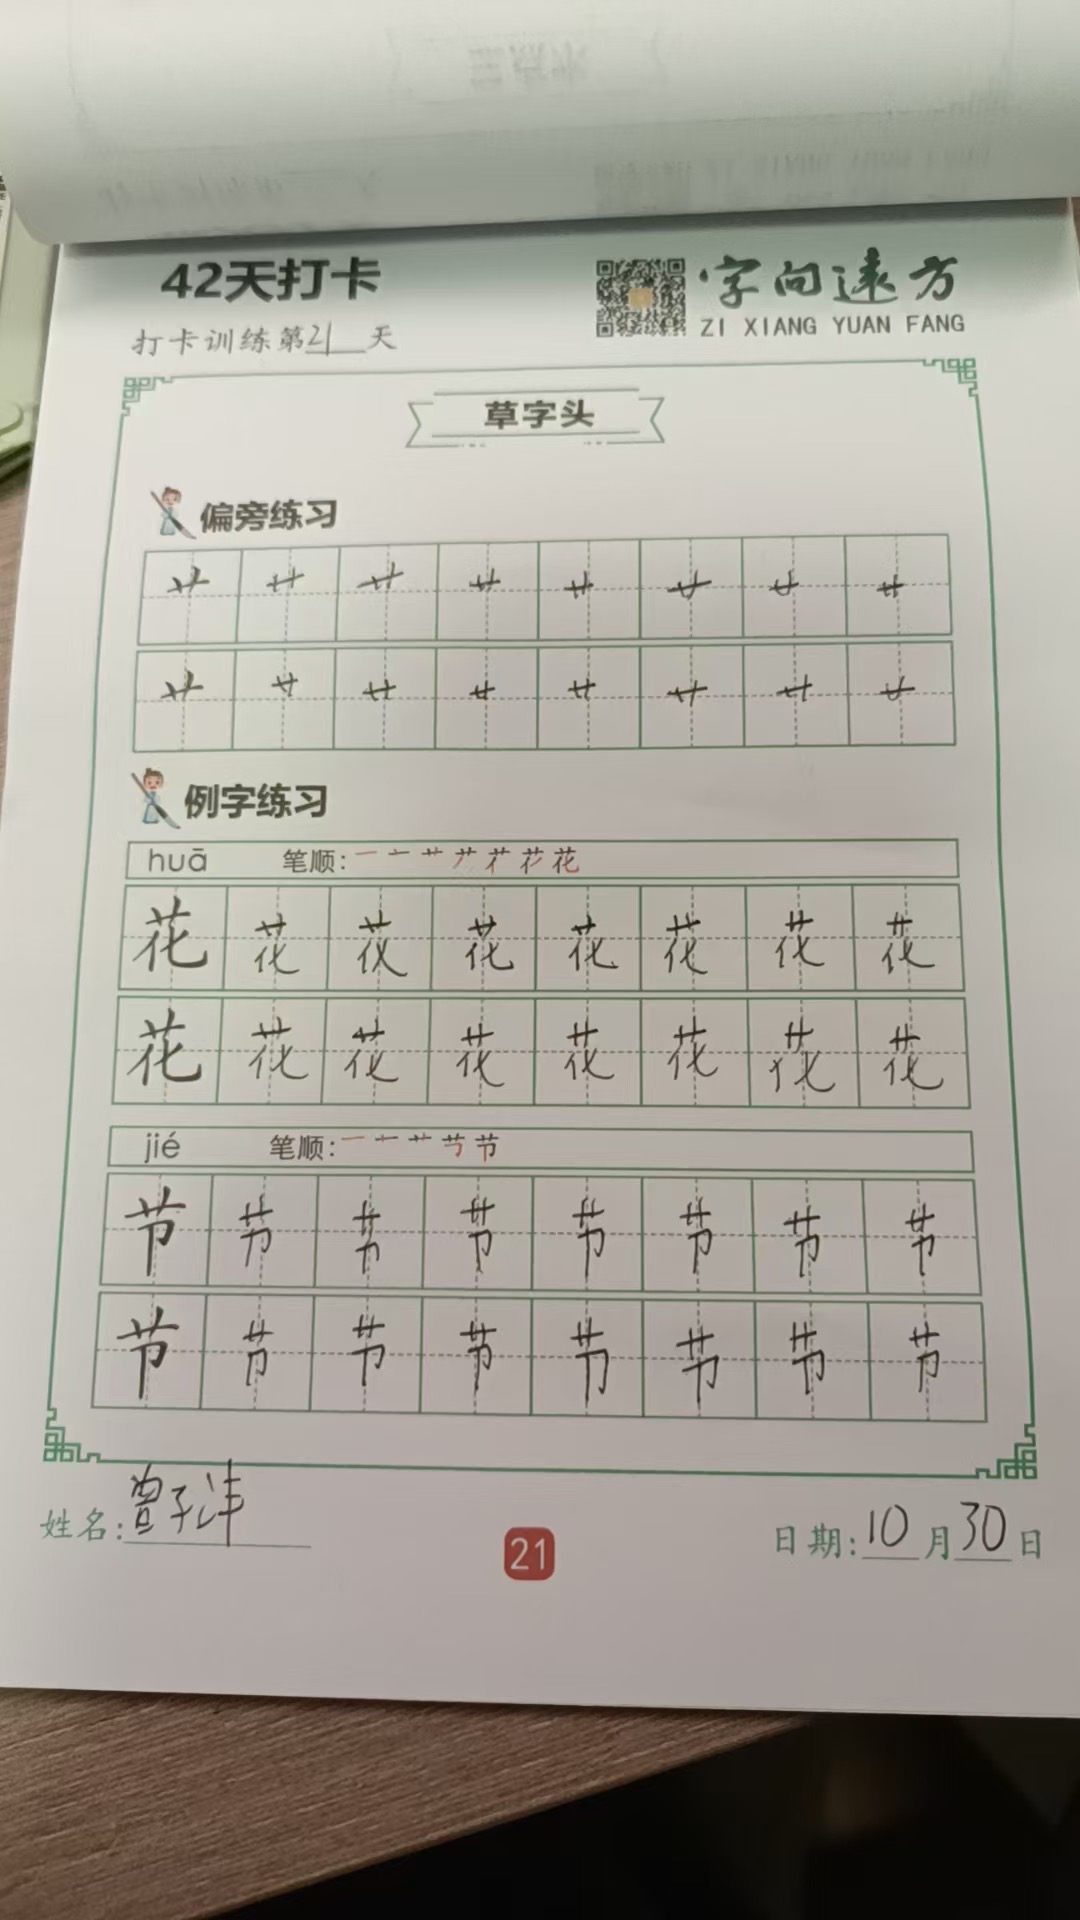 42天打卡
字向远方
ZI XIANG YUAN FANG
打卡训练第21天
草字头
偏旁练习
艹 艹 艹 艹 艹 艹 艹 艹
艹 艹 艹 艹 艹 艹 艹 艹
例字练习
huā 笔顺:一 十 艹 艹 花
花 花 花 花 花 花 花 花
花 花 花 花 花 花 花 花
jié 笔顺:一 十 艹 节
节 节 节 节 节 节 节 节
节 节 节 节 节 节 节 节
姓名:曾子沣
21
日期:10月30日